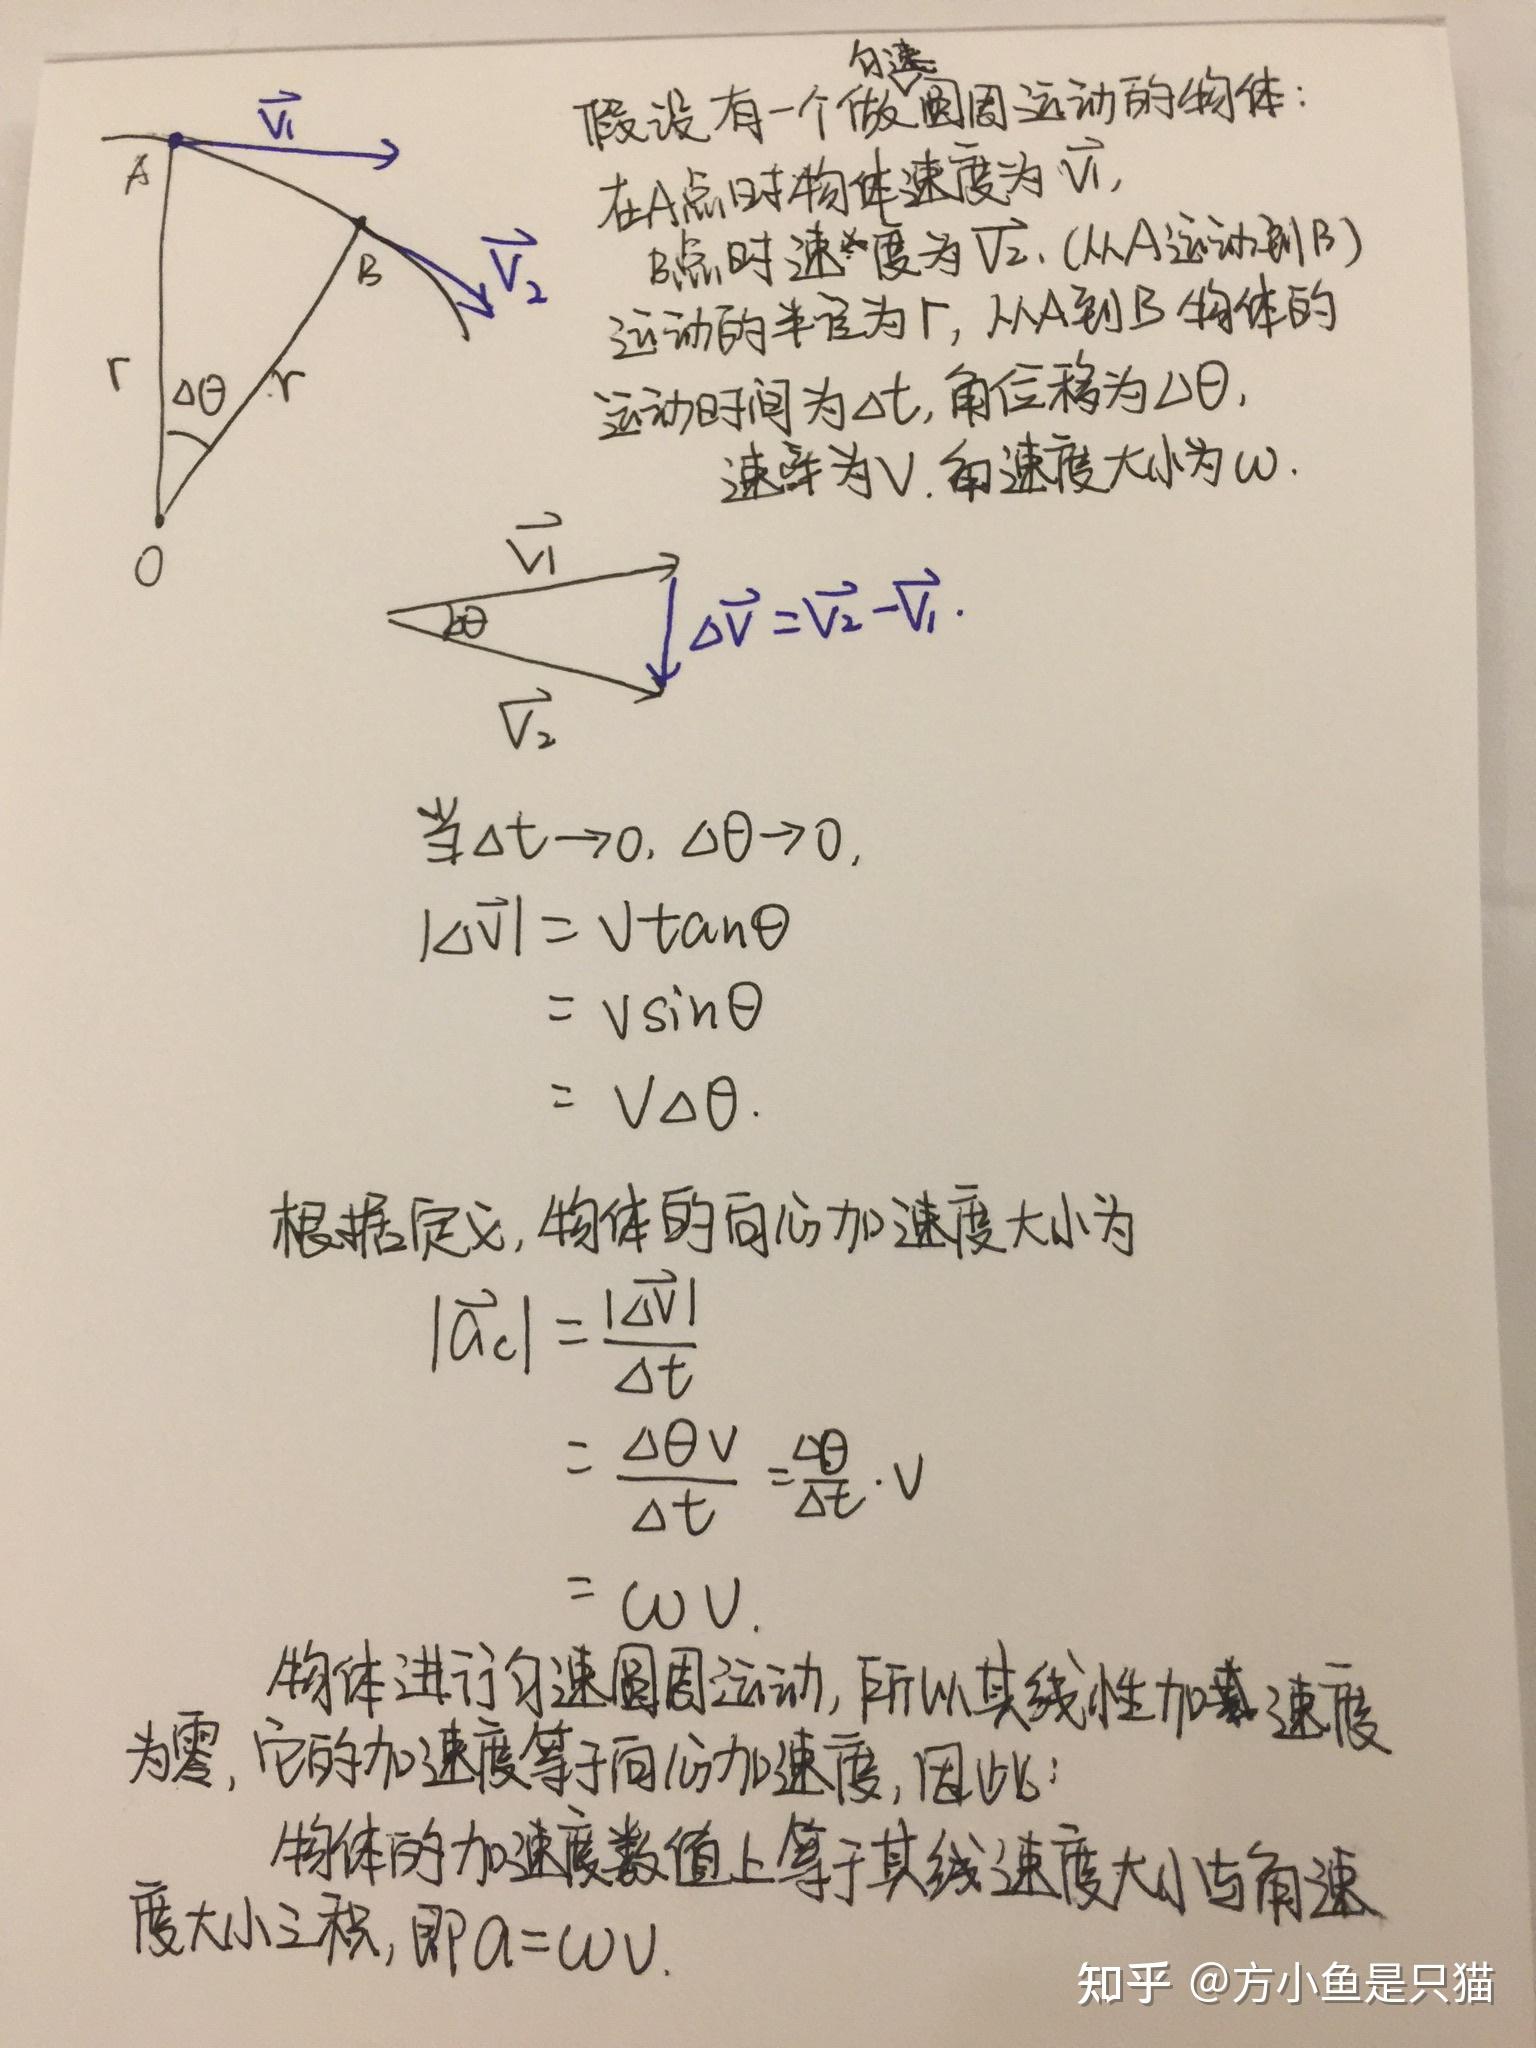 V⃗1
A
B
V⃗2
r
Δθ
r
O
假设有一个做匀速圆周运动的物体：
在A点时物体速度为V⃗1，
B点时速度为V⃗2．(从A运动到B)
运动的半径为r，从A到B物体的
运动时间为Δt，角位移为Δθ，
速率为V．角速度大小为ω．
V⃗1
Δθ
ΔV⃗=V⃗2-V⃗1．
V⃗2
当Δt→0．Δθ→0，
|ΔV⃗|=Vtanθ
=Vsinθ
=VΔθ．
根据定义，物体的向心加速度大小为
|a⃗c|=|ΔV⃗|/Δt
=ΔθV/Δt=Δθ/Δt·V
=ωV．
物体进行匀速圆周运动，所以其线性加速度
为零，它的加速度等于向心加速度，因此：
物体的加速度数值上等于其线速度大小与角速
度大小之积，即a=ωV．
知乎 @方小鱼是只猫